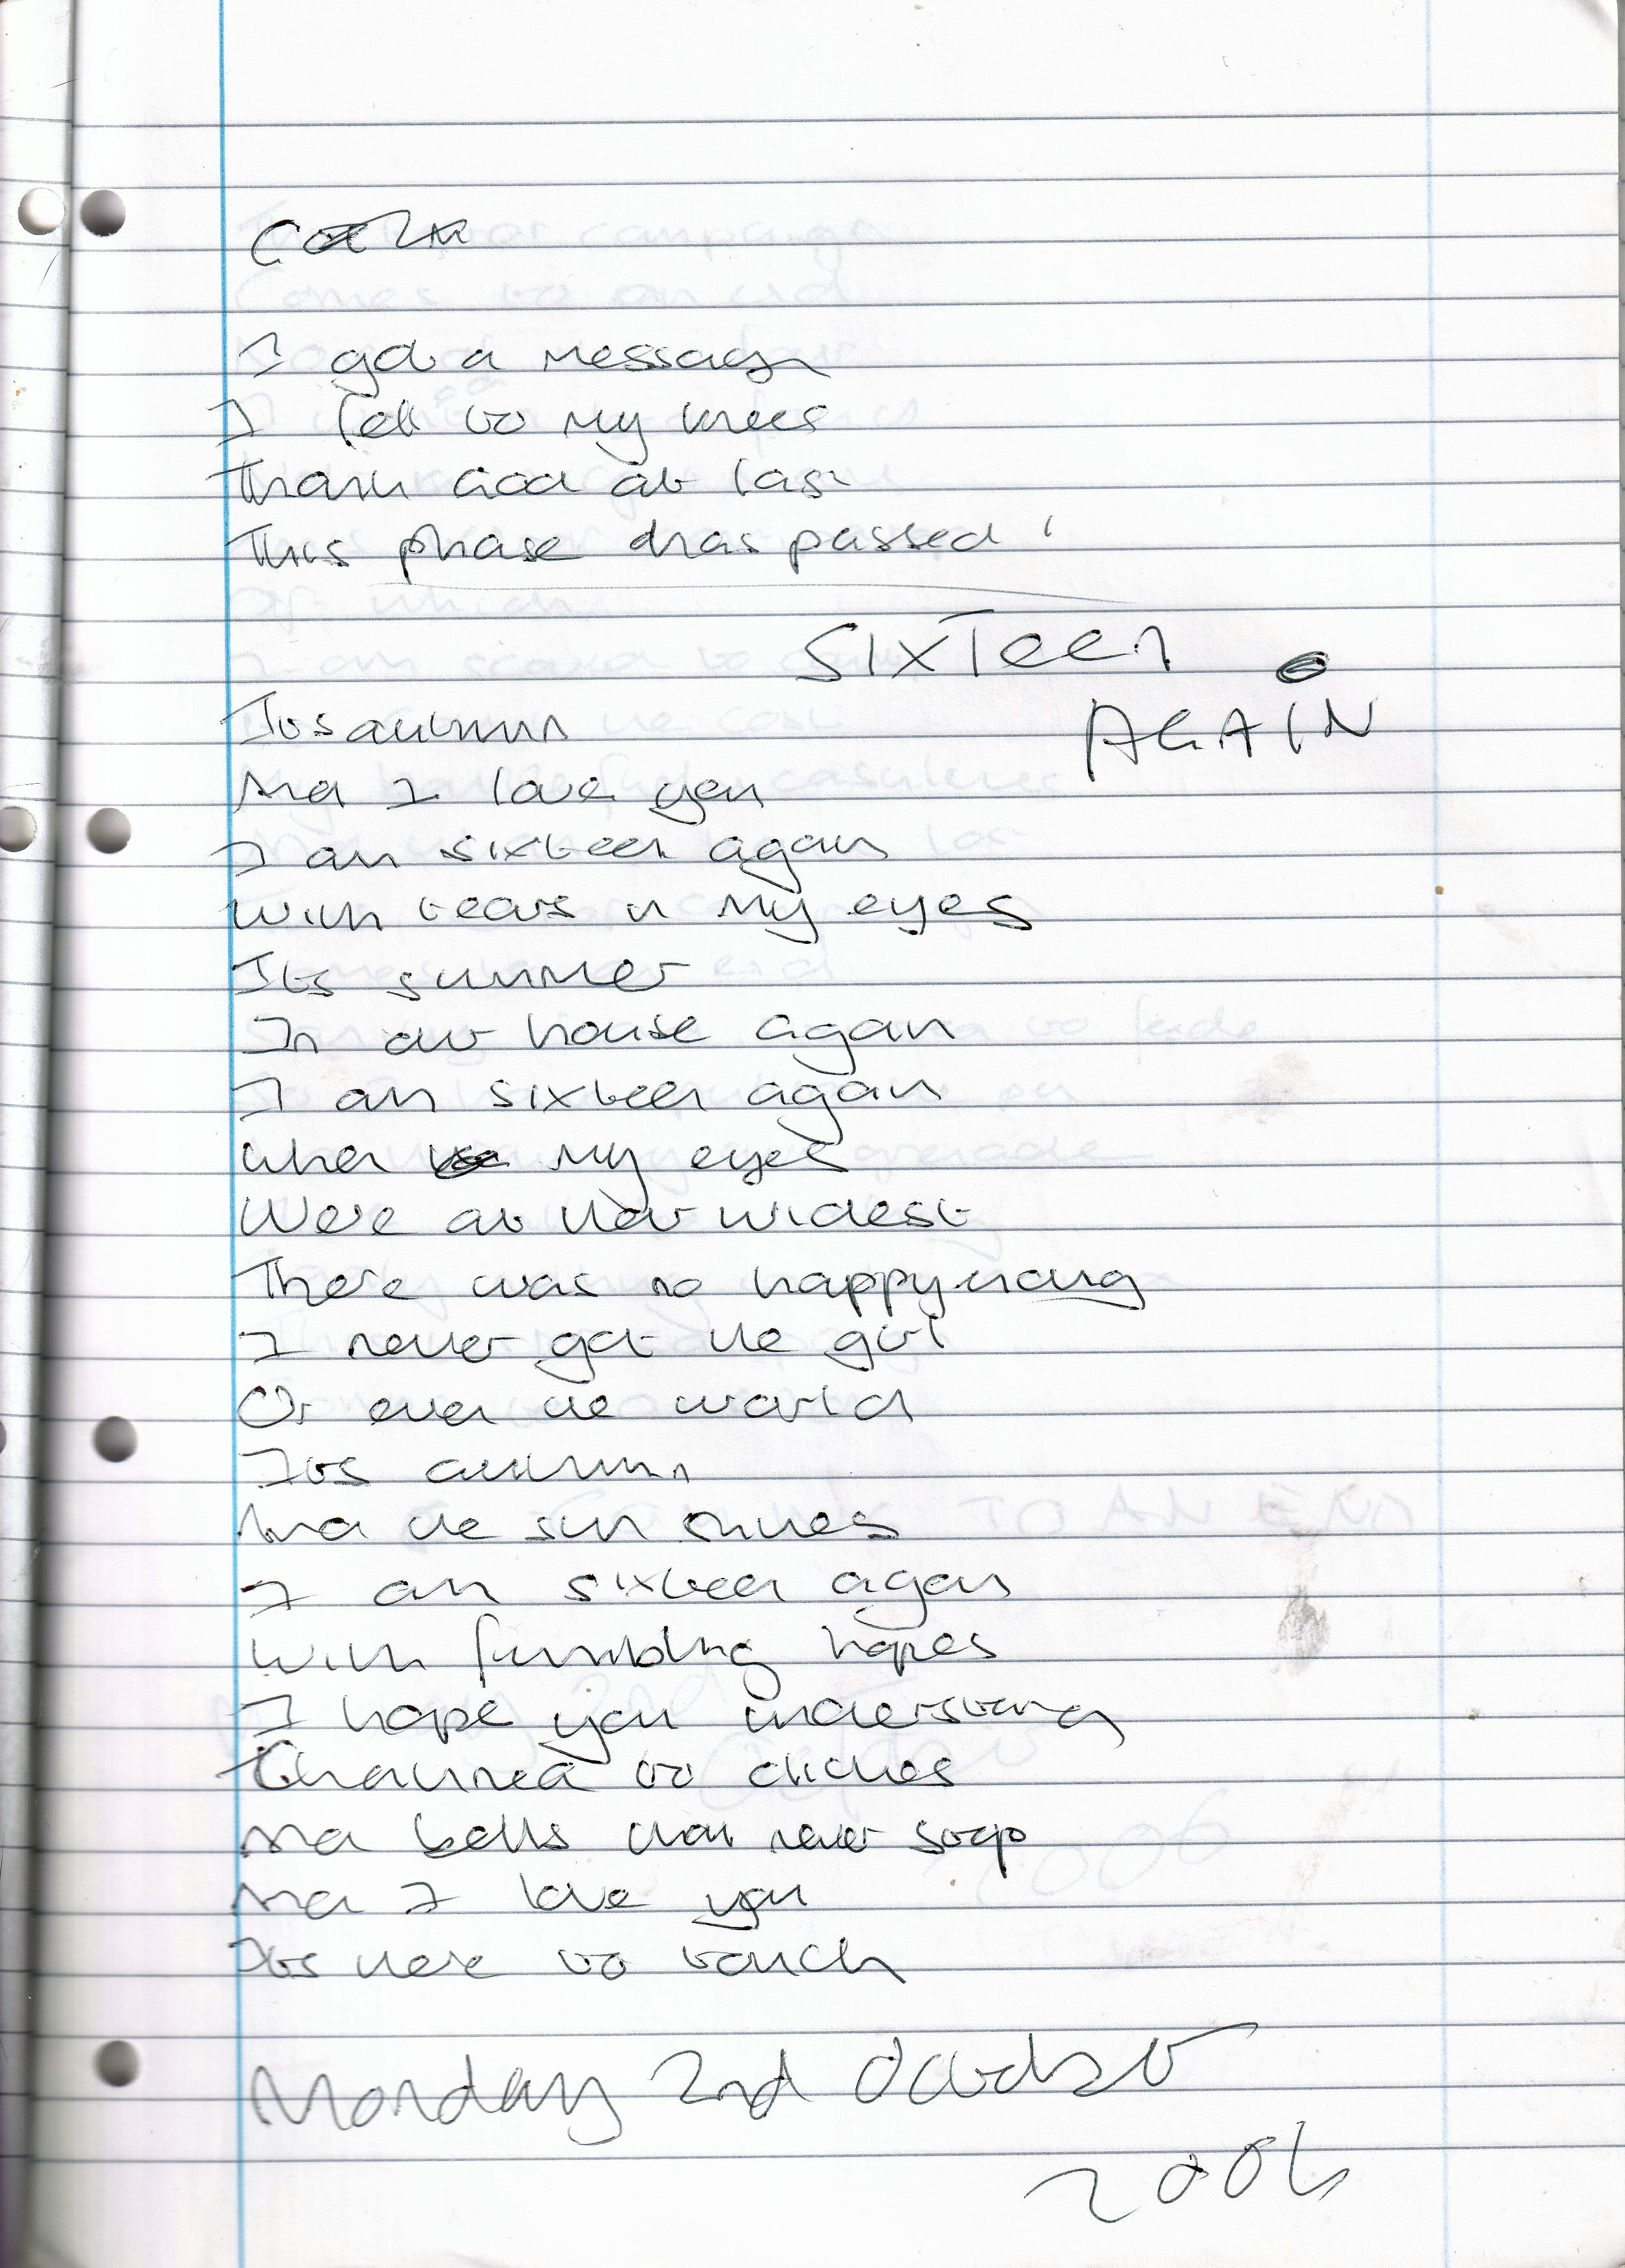 I got a message
I fell to my knees
Thank God at last
This phase has passed!
SIXTEEN
AGAIN
Its autumn
And I love you
I am sixteen again
With tears in my eyes
Its summer
In our house again
I am sixteen again
When my eyes
Were at their widest
There was no happy
I never got the girl
Or even the world
Its autumn
And the sun shines
I am sixteen again
With fumbling hopes
I hope you understand
Chained to cliches
And bells that never stop
And I love you
Its here to touch
Monday 2nd October
2006